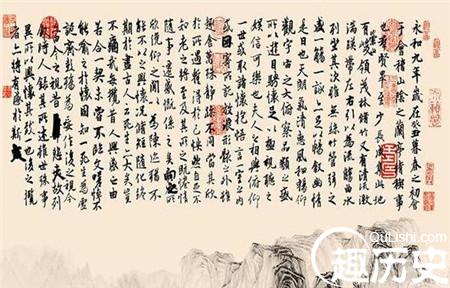 永和九年歲在癸丑暮春之初會
于會稽山陰之蘭亭脩稧事
也羣賢畢至少長咸集此地
有崇山峻領茂林脩竹又有清流激
湍暎帶左右引以為流觴曲水
列坐其次雖無絲竹管弦之
盛一觴一詠亦足以暢敘幽情
是日也天朗氣清惠風和暢仰
觀宇宙之大俯察品類之盛
所以遊目騁懷足以極視聽之
娛信可樂也夫人之相與俯仰
一世或取諸懷抱悟言一室之內
或因寄所託放浪形骸之外雖
趣舍萬殊靜躁不同當其欣
於所遇蹔得於己怏然自足不
知老之將至及其所之既惓情
隨事遷感慨係之矣向之所欣
俛仰之閒以為陳迹猶不
能不以之興懷況脩短隨化終
期於盡古人云死生亦大矣豈
不痛哉每攬昔人興感之由
若合一契未嘗不臨文嗟悼不
能喻之於懷固知一死生為虛
誕齊彭殤為妄作後之視今
亦由今之視昔悲夫故列
敘時人錄其所述雖世殊事
異所以興懷其致一也後之攬
者亦將有感於斯
QuLiShi.com
趣历史